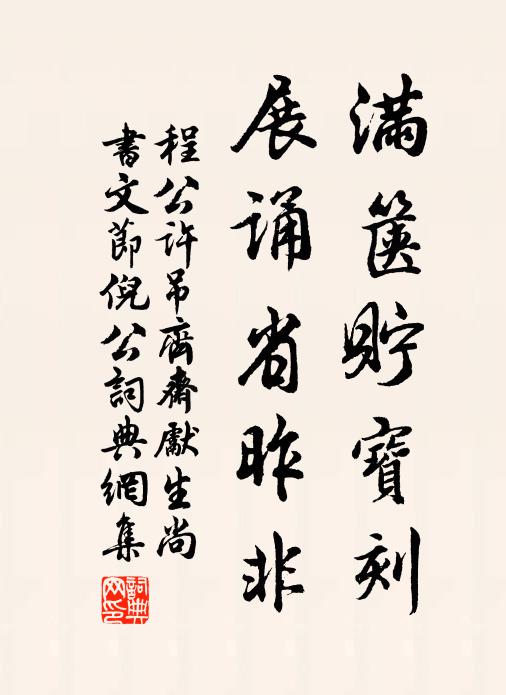 滿篋貯寶刻
展誦省昨非
程公許吊齊齋獻生尚
書文節倪公詞典網集